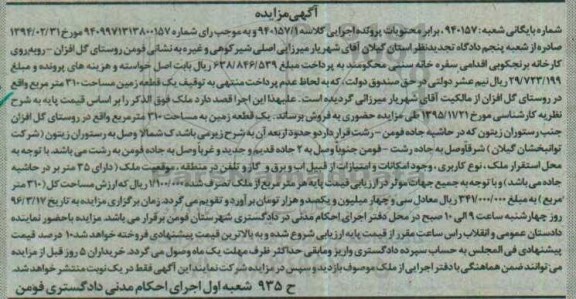 آگهی مزایده
شماره بایگانی شعبه: ۹۴۰۱۵۷. برابر محتویات پرونده اجرایی کلاسه ۹۴۰۱۵۷/۱ و به موجب رای شماره ۹۴۰۹۹۷۱۳۱۳۸۰۰۱۵۷ مورخ ۱۳۹۴/۰۲/۳۱
صادره از شعبه پنجم دادگاه تجدیدنظر استان گیلان آقای شهریار میرزایی اصلی شیرکوهی و غیره به نشانی فومن روستای گل افزان - روبه‌روی
کارخانه برنجکوبی اقدامی سفره خانه سنتی محکومند به پرداخت مبلغ ۶۳۸/۸۴۶/۵۳۹ ریال بابت اصل خواسته و هزینه های پرونده و مبلغ
۲۹/۷۲۳/۱۹۹ ریال نیم عشر دولتی در حق صندوق دولت، که به لحاظ عدم پرداخت منتهی به توقیف یک قطعه زمین مساحت ۳۱۰ متر مربع واقع
در روستای گل افزان از مالکیت آقای شهریار میرزائی گردیده است. علیهذا این اجرا قصد دارد ملک فوق الذکر را بر اساس قیمت پایه به شرح
نظریه کارشناسی مورخ ۱۳۹۵/۱۷۲۱ طی مزایده حضوری به فروش برساند. یک قطعه زمین به مساحت ۳۱۰ متر مربع واقع در روستای گل افزان
جنب رستوران زیتون که در حاشیه جاده فومن - رشت قرار دارد و حدود اربعه آن به شرح زیر می باشد ک شمالا وصل به رستوران زیتون (شرکت
توانبخشان گیلان) شرقا وصل به جاده رشت - فومن جنوبا وصل به ۲ جاده قدیم و جدید و غربا وصل به جاده فومن به رشت می باشد. با توجه به
محل استقرار ملک، نوع کاربری، وجود امکانات و امتیازات از قبیل آب و برق و گاز و تلفن در منطقه، موقعیت ملک (دارای ۳۵ متر بر در حاشیه
جاده می باشد) و با توجه به جمیع جهات موثر در ارزیابی قیمت پایه هر متر مربع از ملک تصرف شده ۱/۱۰۰/۰۰۰ ریال که ارزش مساحت کل (۳۱۰ متر
مربع) به مبلغ ۳۴۱/۰۰۰/۰۰۰ ریال معادل سی و چهار میلیون و یکصد و هزار تومان برآورد و تقویم می گردد. زمان برگزاری مزایده به تاریخ ۹۶/۳/۱۷
روز چهارشنبه ساعت ۹ الی ۱۰ صبح در محل دفتر اجرای احکام مدنی در دادگستری شهرستان فومن برقرار می باشد. مزایده با حضور نماینده
دادستان عمومی و انقلاب راس ساعت مقرر از قیمت پایه ارزیابی شروع شده و به بالاترین قیمت پیشنهادی فروخته خواهد شد ۱۰ درصد قیمت
پیشنهادی فی المجلس به حساب سپرده دادگستری واریز و مابقی حداکثر ظرف مهلت یک ماه وصول می گردد. خریداران ۵ روز قبل از مزایده
می توانند ضمن هماهنگی با دفتر اجرایی از ملک موصوف بازدید و سپس در مزایده شرکت نمایند این آگهی فقط در یک نوبت منتشر خواهد شد.
ح ۹۳۵ شعبه اول اجرای احکام مدنی دادگستری فومن